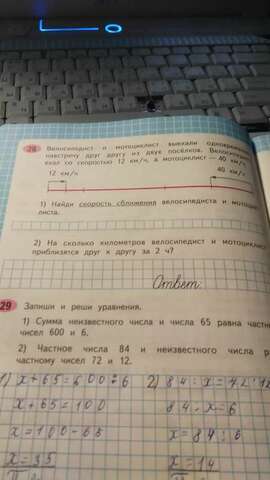 28 Велосипедист и мотоциклист выехали одновременно
навстречу друг другу из двух посёлков. Велосипедист
ехал со скоростью 12 км/ч, а мотоциклист — 40 км/ч.
12 км/ч 40 км/ч
1) Найди скорость сближения велосипедиста и мотоцик-
листа.
2) На сколько километров велосипедист и мотоциклист
приблизятся друг к другу за 2 ч?
Ответ:
29 Запиши и реши уравнения.
1) Сумма неизвестного числа и числа 65 равна частному
чисел 600 и 6.
2) Частное числа 84 и неизвестного числа
частному чисел 72 и 12.
1) x+65=600:6 2) 84:x=72:12
x+65=100 84:x=6
x=100-65 x=84:6
x=35 x=14